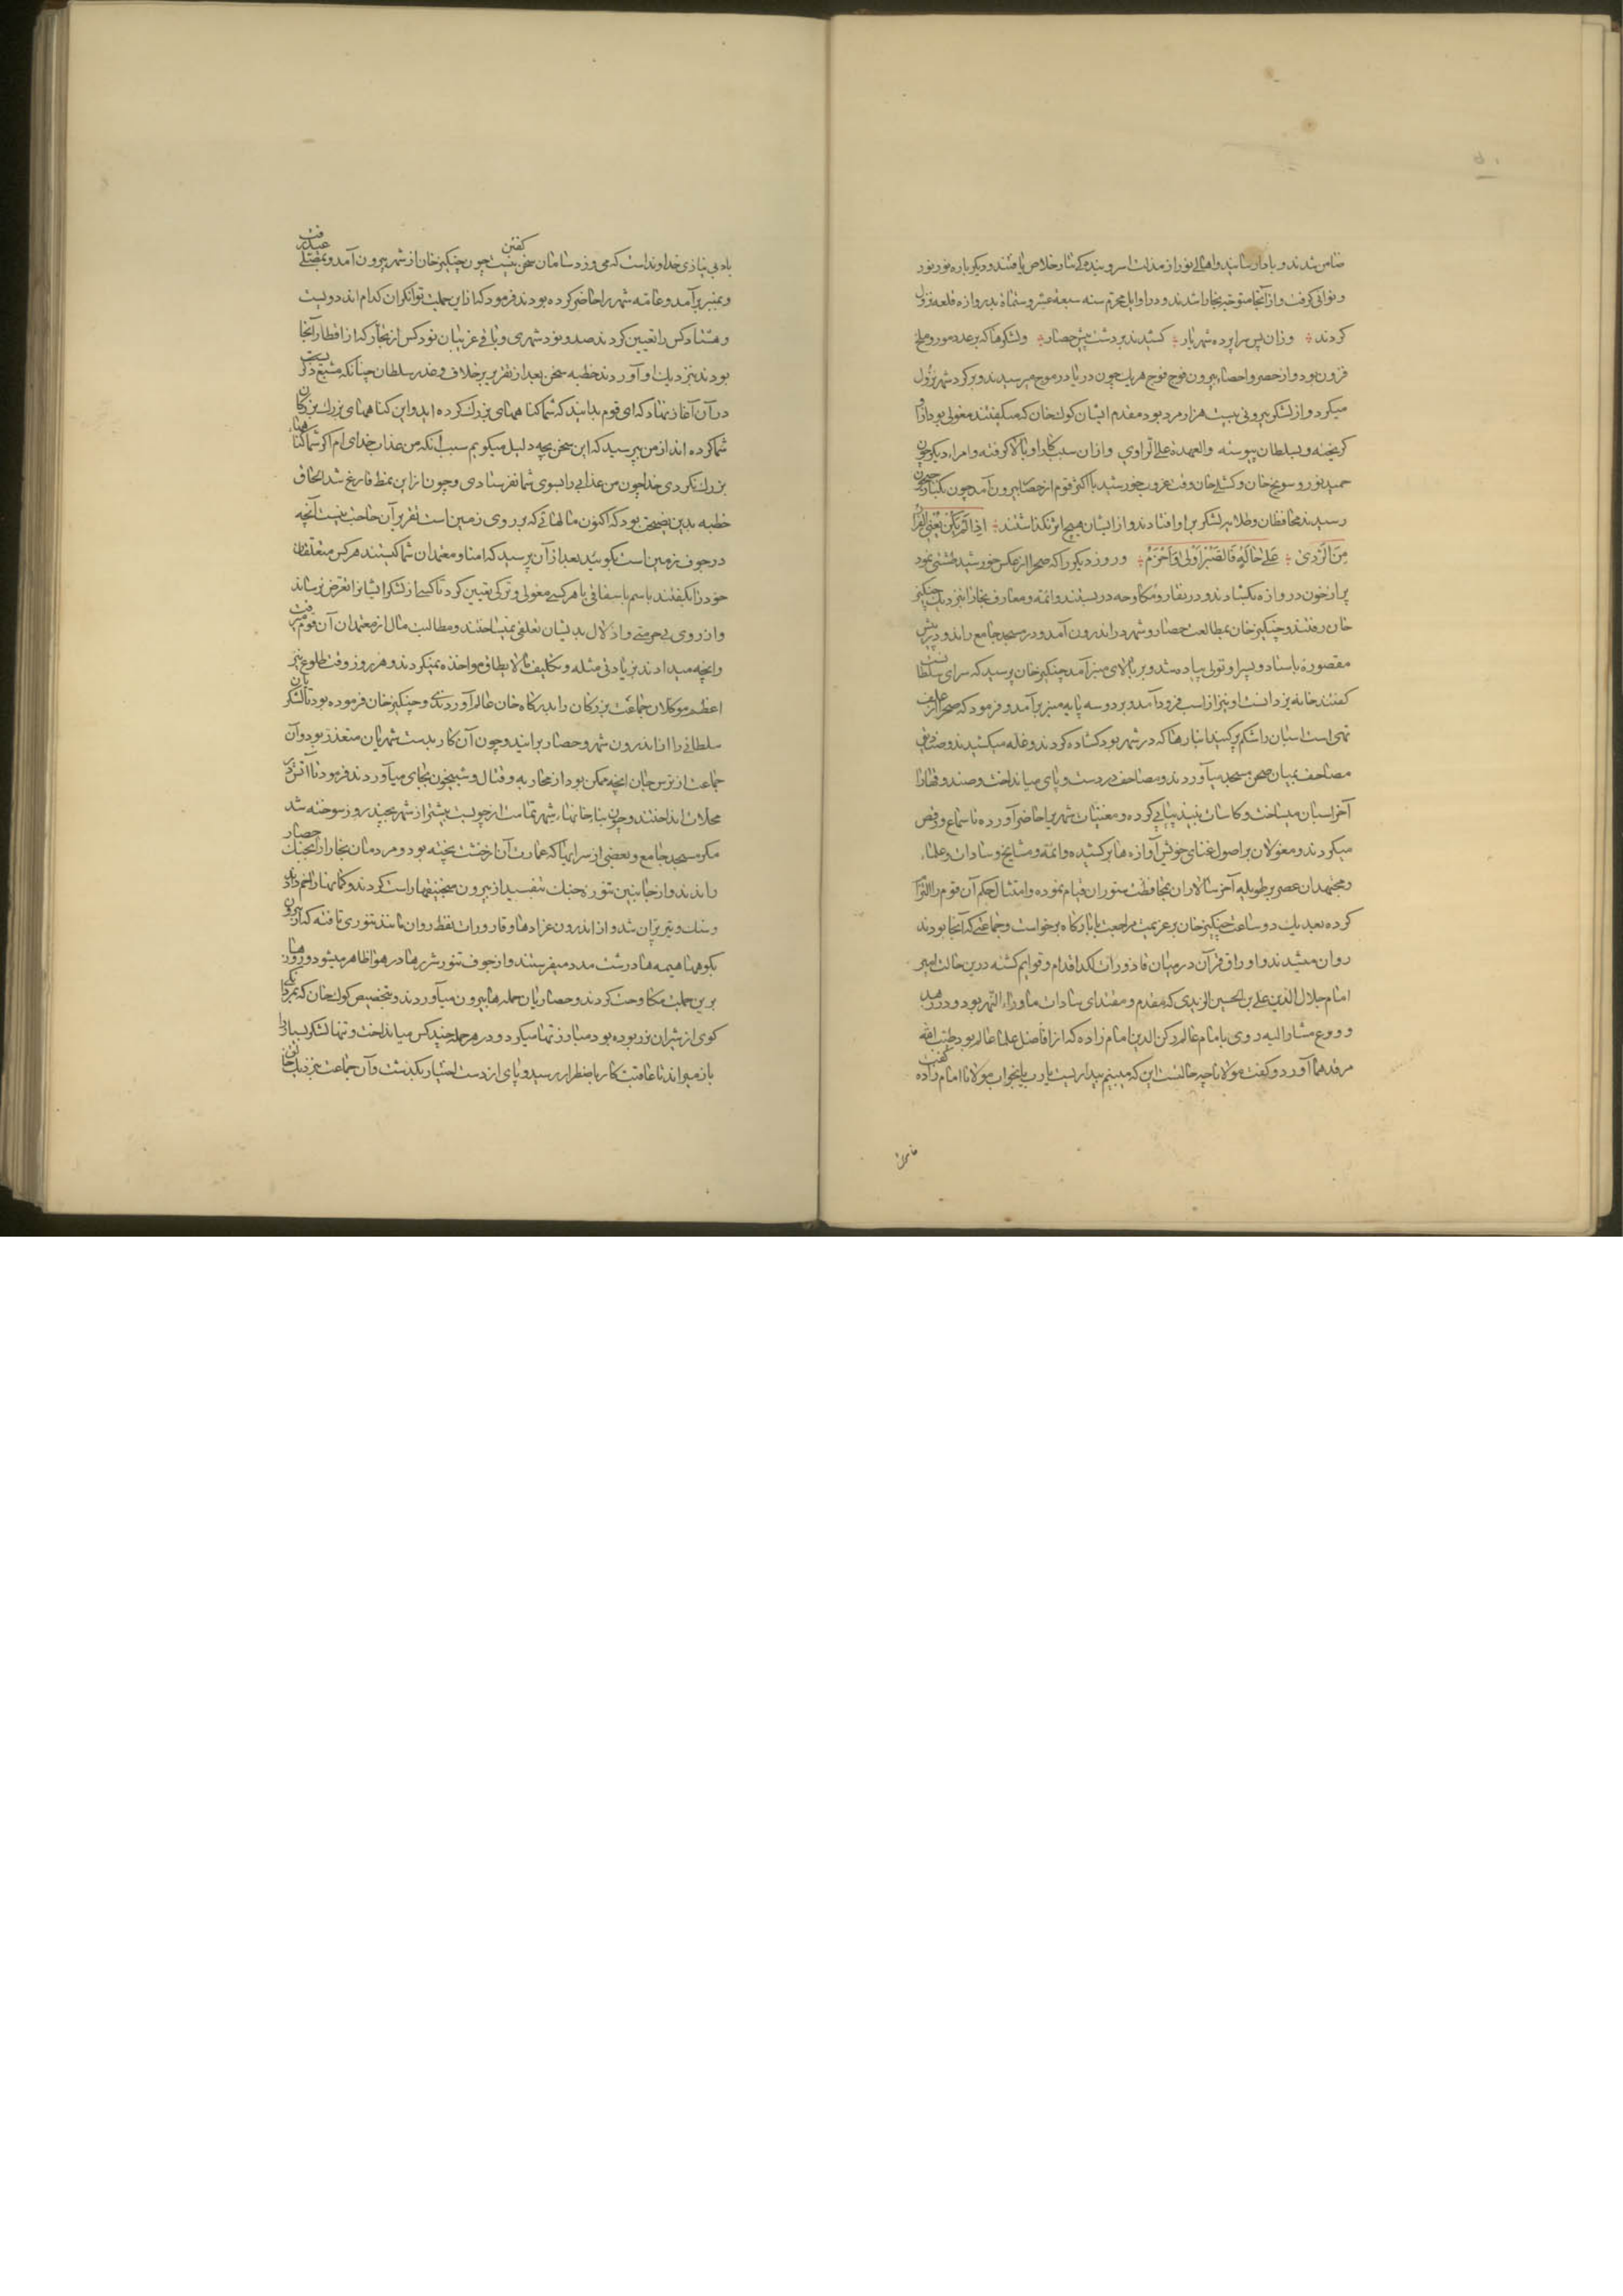 ضامن شدند و با دا رسانید و اهالی نور از مذلت اسر و بندگی تتار خلاص یافتند و دیگر باره نور نور
و نوائی گرفت و از آنجا متوجه بخارا شدند و در اوایل محرم سنه سبعة عشر و ستمائة بدروازه قلعه نزول
کردند وزان پس سراپرده شهریار کشیدند بر دشت پیش حصار و لشکرها که بر عدد مور و ملخ
فزون بود و از حصر و احصاء بیرون فوج فوج هریک چون دریا در موج میرسیدند و بر گرد شهر نزول
میکرد و از لشکر بیرونی بیست هزار مرد بود مقدم ایشان کوک خان که میگفتند مغولی بود و ازو
گریخته و بسلطان پیوسته والعهدة علی الراوی و ازان سبب کار او بالا گرفته و امراء دیگر چون
حمید نور و سونج خان و کشلی خان وقت غروب خورشید با اکثر قوم از حصار بیرون آمد چون بکنار جیحون
رسیدند محافظان و طلایه لشکر برا و افتادند و از ایشان هیچ اثر نگذاشتند اذا لم یکن یغنی الفرار
من الردی علی حالة فالصبر اولی و احزم و روز دیگر را که صحرا از عکس خورشید طشتی نمود
پر از خون دروازه بگشادند و در نقار و مکاوحه دربستند و ائمه و معارف بخارا بنزدیک چنگیز
خان رفتند و چنگیز خان بمطالعت حصار و شهر در اندرون آمد و در مسجد جامع راند و در پیش
مقصوره باستاد و پسر او تولی پیاده شد و بر بالای منبر آمد چنگیز خان پرسید که سرای سلطانست
گفتند خانه یزدانست او نیز از اسب فرود آمد و بر دو سه پایه منبر بر آمد و فرمود که صحرا از علف
تهی است اسبان را شکم پر کنید انبارها که در شهر بود گشاده کردند و غله میکشیدند و صنادیق
مصاحف بمیان صحن مسجد میآوردند و مصاحف در دست و پای میانداخت و صندوقها را
آخر اسبان میساخت و کاسات نبیذ پیاپی کرده و مغنیات شهر را حاضر آورده تا سماع و رقص
میکردند و مغولان بر اصول غنای خویش آوازه ها برکشیده و ائمه و مشایخ و سادات و علماء
و مجتهدان عصر بر طویله آخر سالاران بمحافظت ستوران قیام نموده و امتثال حکم آن قوم را التزام
کرده بعد یک دو ساعت چنگیز خان بر عزیمت مراجعت با بارگاه برخواست و جماعتی که آنجا بودند
روان میشدند و اوراق قرآن در میان قاذورات لگد اقدام و قوایم گشته درین حالت امیر
امام جلال الدین علی بن الحسین الزیدی که مقدم و مقتدای سادات ماوراء النهر بود و در زهد
و ورع مشار الیه روی بامام عالم رکن الدین امام زاده که از افاضل علماء عالم بود طیب الله
مرقدهما آورد و گفت مولانا چه حالتست این که میبینم بیداریست یا رب یا بخواب مولانا امام زاده گفت
خاموش
باد بی نیازی خداوند است که می وزد سامان سخن گفتن نیست چون چنگیز خان از شهر بیرون آمد و بمصلی عید رفت
و بمنبر بر آمد و عامه شهر را حاضر کرده بودند فرمود که ازین جملت توانگران کدام اند دویست
و هشتاد کس را تعیین کردند صد و نود شهری و باقی غریبان نود کس از تجار که از اقطار آنجا
بودند بنزدیک او آوردند خطبه سخن بعد از تقریر خلاف و غدر سلطان چنانکه مشبع ذکریست
در آن آغاز نهاد که ای قوم بدانید که شما گناههای بزرگ کرده اید و این گناههای بزرگ بزرگان
شما کرده اند از من بپرسید که این سخن بچه دلیل میگویم سبب آنکه من عذاب خدای ام اگر شما گناههای
بزرگ نکردی خدا چون من عذابی را بسوی شما نفرستادی و چون ازین نمط فارغ شد الحاق
خطبه بدین نصیحت بود که اکنون مالهائی که بر روی زمین است تقریر آن حاجت نیست آنچه
در جوف زمین است بگویید بعد از آن پرسید که امنا و معتمدان شما کیستند هر کس متعلقان
خود را بگفتند با سم باسقاقی با هر کسی مغولی و ترکی تعیین کرد تا کسی از لشکر ایشانرا تعرض نرساند
و از روی بی حرمتی و اذلال بدیشان تعلقی نمیساختند و مطالبت مال از معتمدان آن قوم میرفت
و آنچه میدادند بزیادتی مثله و تکلیف مالایطاق مواخذه نمیکردند و هر روز وقت طلوع نیر
اعظم موکلان جماعت بزرگان را بدرگاه خان عالم آوردندی و چنگیز خان فرموده بود تا لشکریان
سلطانی را از اندرون شهر و حصار برانند و چون آن کار بدست شهریان متعذر بود و آن
جماعت از ترس جان آنچه ممکن بود از محاربه و قتال و شبیخون بجای میآوردند فرمود تا آتش در
محلات انداختند و چون بناء خانهاء شهر تمامت از چوب بیشتر از شهر بچند روز سوخته شد
مگر مسجد جامع و بعضی از سرایها که عمارت آن از خشت پخته بود و مردمان بخارا را بجنگ حصار
راندند و از جانبین تنوره جنگ بتفسید از بیرون منجنیقها راست کردند و کمانها را خم دادند
و سنگ و تیر پران شد و از اندرون عرادها و قارورات نفط روان مانند تنوری تافته که از بیرون
بکوهها هیمه ها درشت مدد میفرستند و از جوف تنور شررها در هوا ظاهر میشود روزها
برین جملت مکاوحت کردند و حصاریان حمله ها بیرون میآوردند و بتخصیص کوک خان که بمردانگی
گوی از شیران نر بوده بود مبارزتها میکرد و در هر حمله چند کس میانداخت و تنها لشکر بسیار را
باز میراند تا عاقبت کار باضطرار رسید و پای از دست اختیار بگذشت و آن جماعت بنزدیک خالق